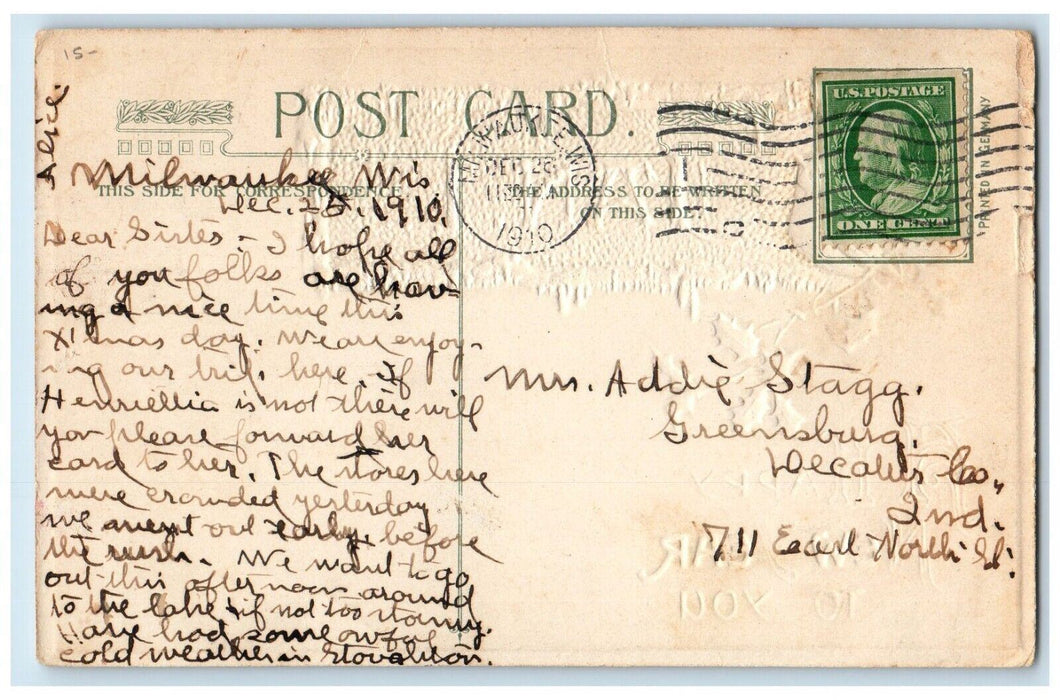 15-
Alice.
POST CARD.
THIS SIDE FOR CORRESPONDENCE
THE ADDRESS TO BE WRITTEN
ON THIS SIDE.
MILWAUKEE, WIS.
DEC 26
1910
U.S. POSTAGE
ONE CENT
PRINTED IN GERMANY
Milwaukee Wis.
Dec. 25, 1910.
Dear Sister:- I hope all
of you folks are hav-
ing a nice time this
X'mas day. We are enjoy-
ing our trip here. If
Henriettia is not there will
you please forward her
card to her. The stores here
were crowded yesterday
we went out early, before
the rush. We want to go
out this afternoon around
to the lake if not too stormy.
Have had some owful
cold weather in Stoughton.
Mrs. Addie Stagg.
Greensburg,
Decatur Co.,
Ind.
711 East North St.
NEW YEAR
TO YOU